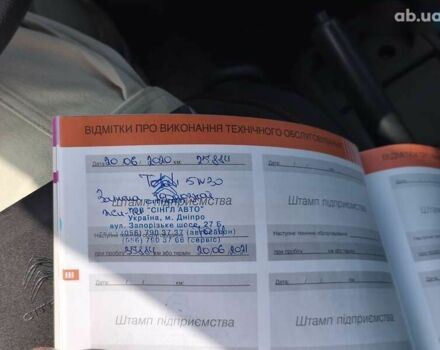 ab.ua
ВІДМІТКИ ПРО ВИКОНАННЯ ТЕХНІЧНОГО ОБСЛУГОВУВАННЯ
Дата: 20.06.2020 км: 25844
Total 5W30
Замена
Штамп підприємства
"СІНГЛ АВТО"
Україна, м. Дніпро
вул. Запорізьке шосе, 27 Б
(056) 790 37 37 (автосалон)
(056) 790 37 66 (сервіс)
при пробігу км або термін 20.06.2021
Дата: / / км:
Штамп підприємства
Наступне технічне обслуговування
при пробігу км або термін / /
Дата: / / км:
Штамп підприємства
Дата: / / км:
Штамп підприємства
ВІДМІТКИ ПРО В
Дата:
Штам